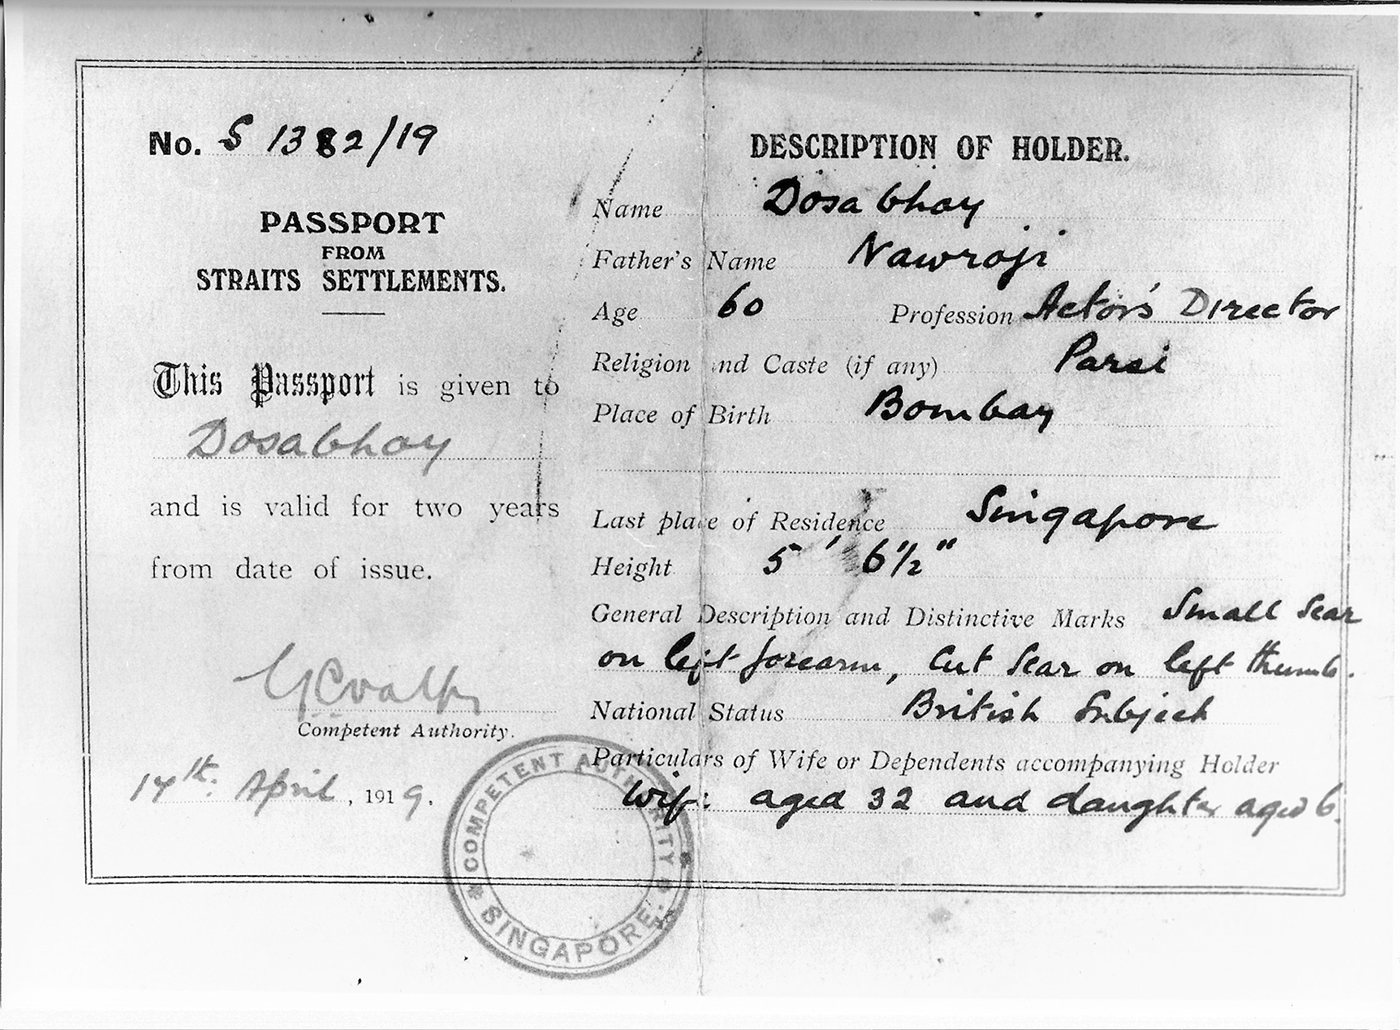 No. S 1382/19
PASSPORT
FROM
STRAITS SETTLEMENTS.
This Passport is given to
Dosabhoy
and is valid for two years
from date of issue.
Competent Authority.
14th. April, 1919.
DESCRIPTION OF HOLDER.
Name Dosabhoy
Father's Name Nawroji
Age 60 Profession Actor's Director
Religion and Caste (if any) Parsi
Place of Birth Bombay
Last place of Residence Singapore
Height 5' 6½"
General Description and Distinctive Marks Small Scar
on left forearm, Cut Scar on left thumb.
National Status British Subject
Particulars of Wife or Dependents accompanying Holder
Wife aged 32 and daughter aged 6.
COMPETENT AUTHORITY
SINGAPORE.